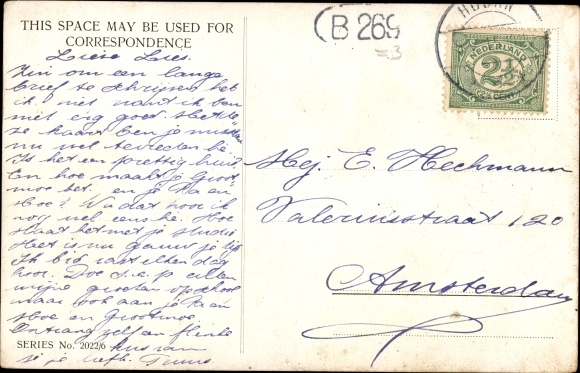 THIS SPACE MAY BE USED FOR
CORRESPONDENCE
Lieve Lies.
Zin om een lange
brief te schrijven heb
ik niet want ik ben
niet erg goed. Met de
ze kaart ben je
nu wel tevreden hè.
Is het een prettig huis
En hoe maakt je Groot
moe het. en je Pa en
Moe? Nu dat hoor ik
nog wel eens hè. Hoe
staat het met je studie
Het is nu gauw je tijd
Ik bid vast elken dag
hoor. Doe s.v.p. allen
mijne groeten op school
maar ook aan je Pa en
Moe en Grootmoe.
Ontvang zelf en flinke
kus van
je je liefh. Truus.
SERIES No. 2022/6
B 269
=3
HOORN
NEDERLAND
2½
(2½ CENT)
Mej. E. Hechmann
Valeriusstraat 120
Amsterdam